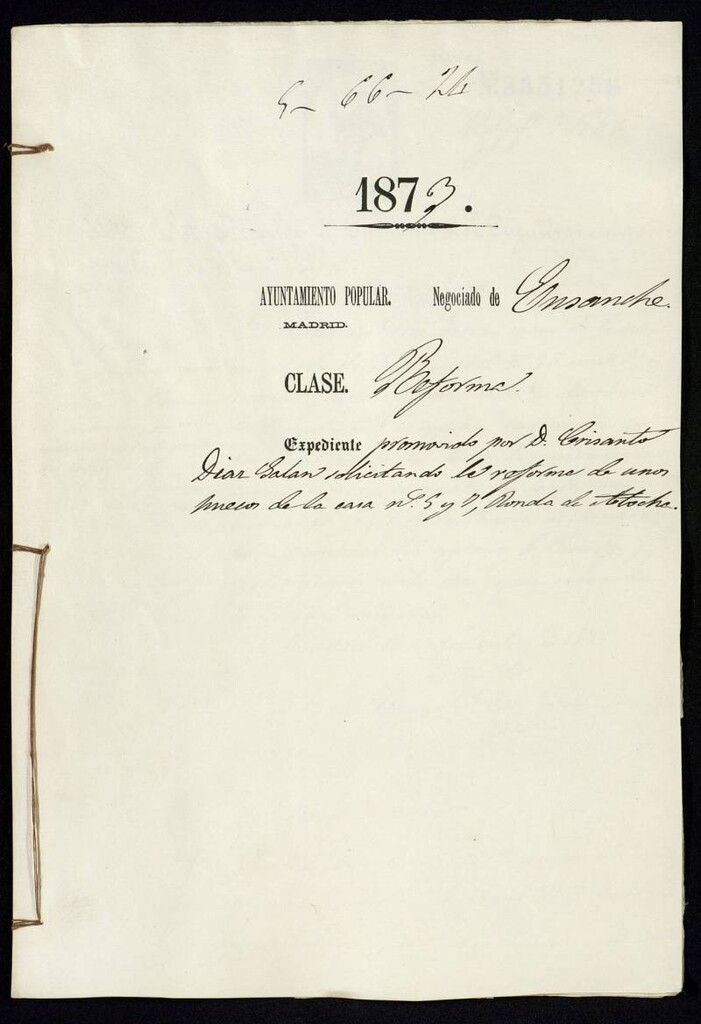 5-66-24
1873.
AYUNTAMIENTO POPULAR. Negociado de Ensanche.
MADRID.
CLASE. Reforma.
Expediente promovido por D. Crisanto
Diaz Galan solicitando la reforma de unos
huecos de la casa nº. 5 y 7, Ronda de Atocha.